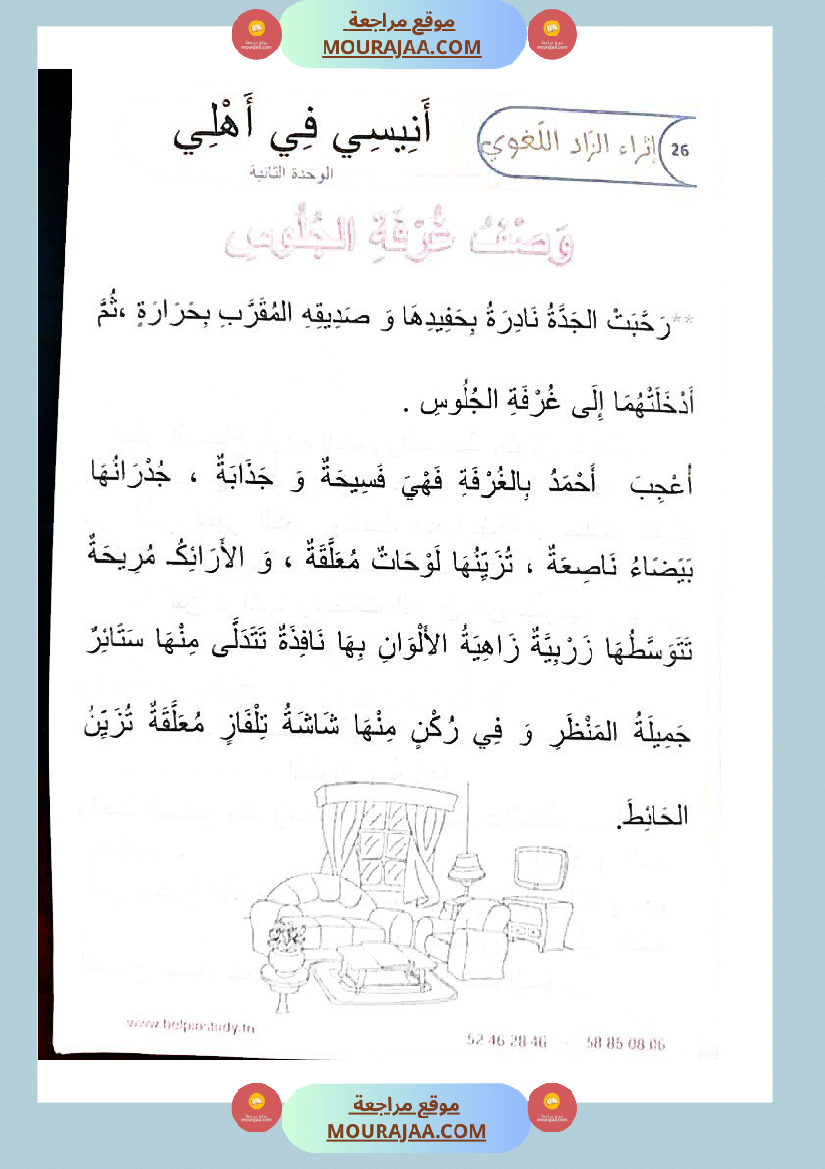 موقع مراجعة
MOURAJAA.COM
26 إثراء الزّاد اللّغوي
أَنِيسِي فِي أَهْلِي
الوحدة الثانية
وَصْفُ غُرْفَةِ الجُلُوسِ
**رَحَّبَتْ الجَدَّةُ نَادِرَةُ بِحَفِيدِهَا وَ صَدِيقِهِ المُقَرَّبِ بِحَرَارَةٍ ،ثُمَّ
أَدْخَلَتْهُمَا إِلَى غُرْفَةِ الجُلُوسِ .
أُعْجِبَ أَحْمَدُ بِالغُرْفَةِ فَهْيَ فَسِيحَةٌ وَ جَذَابَةٌ ، جُدْرَانُهَا
بَيْضَاءُ نَاصِعَةٌ ، تُزَيِّنُهَا لَوْحَاتٌ مُعَلَّقَةٌ ، وَ الأَرَائِكُ مُرِيحَةٌ
تَتَوَسَّطُهَا زَرْبِيَّةٌ زَاهِيَةُ الأَلْوَانِ بِهَا نَافِذَةٌ تَتَدَلَّى مِنْهَا سَتَائِرٌ
جَمِيلَةُ المَنْظَرِ وَ فِي رُكْنٍ مِنْهَا شَاشَةُ تِلْفَازٍ مُعَلَّقَةٌ تُزَيِّنُ
الحَائِطَ.
www.helpinstudy.tn
52 46 28 46 - 58 85 08 06
موقع مراجعة
MOURAJAA.COM